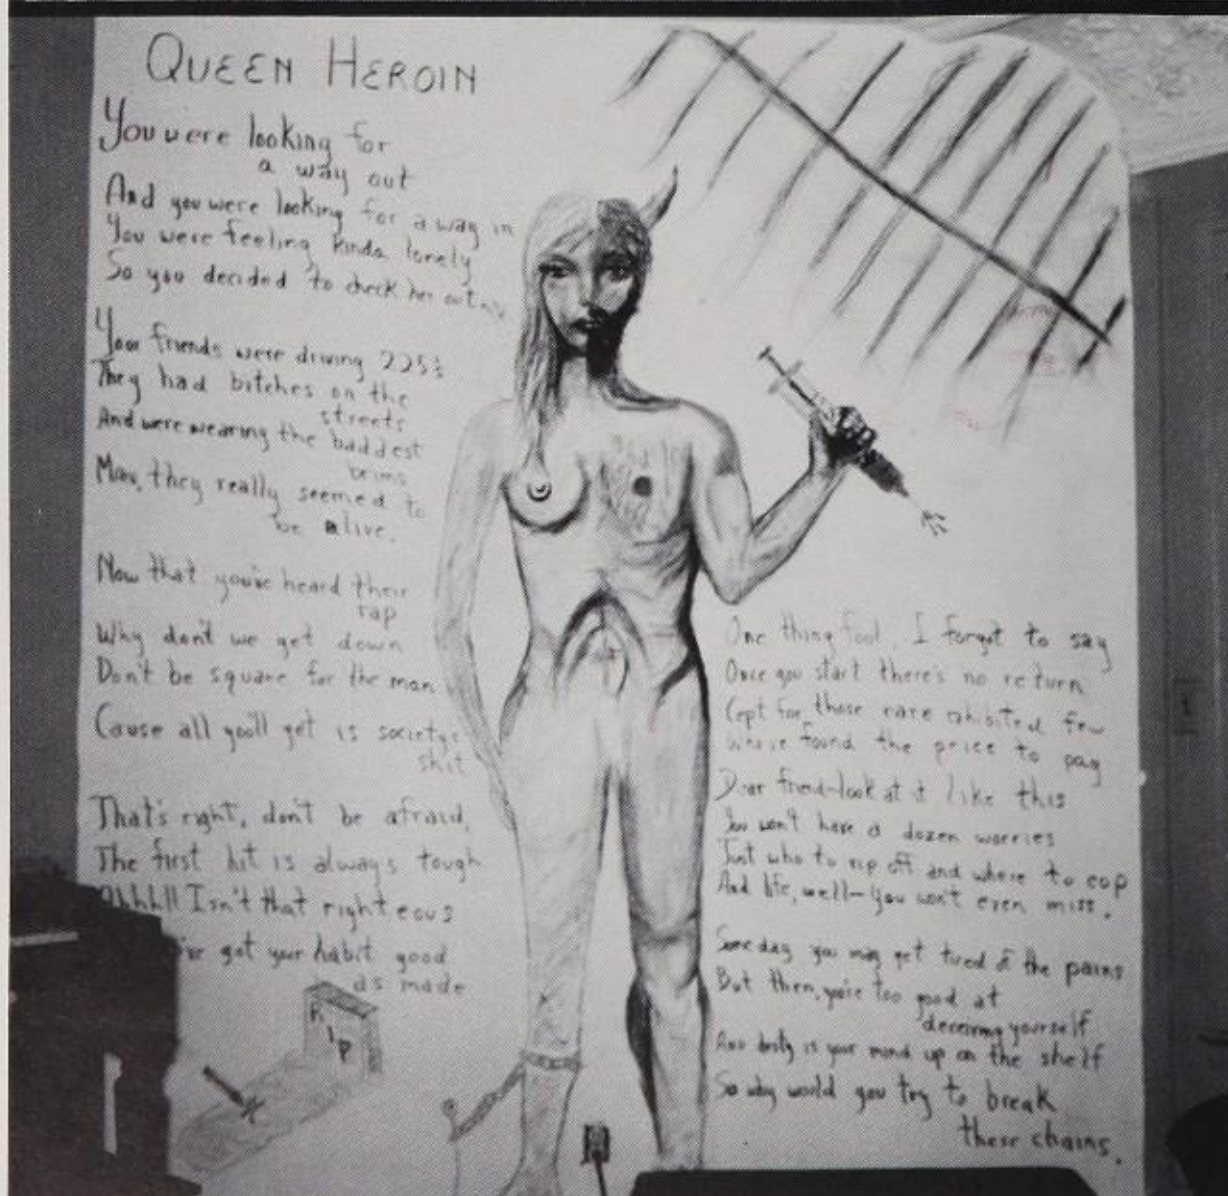 QUEEN HEROIN
You were looking for
a way out
And you were looking for a way in
You were feeling kinda lonely
So you decided to check her out
Your friends were driving 225's
They had bitches on the
streets
And were wearing the baddest
brims
Man, they really seemed to
be alive.
Now that you've heard their
rap
Why don't we get down
Don't be square for the man
Cause all you'll get is society's
shit
That's right, don't be afraid,
The first hit is always tough
Ahhh!! Isn't that righteous
got your habit good
as made
RIP
One thing fool, I forgot to say
Once you start there's no return
Cept for those rare few
found the price to pay
Dear friend-look at it like this
You won't have a dozen worries
Just who to rip off and where to cop
And life, well- you won't even miss.
Some day you may get tired of the pains
But then, you're too good at
deceiving yourself
And is your mind up on the shelf
So why would you try to break
these chains.